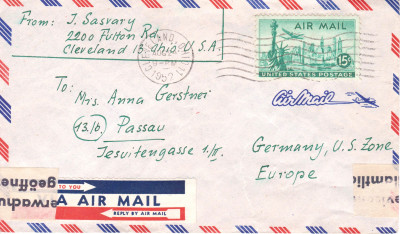 From: J. Sasvary
2200 Fulton Rd.
Cleveland 13. Ohio U.S.A.
CLEVELAND
1952
AIR MAIL
15¢
UNITED STATES POSTAGE
Air Mail
To:
Mrs. Anna Gerstnei
(13/b) Passau
Jesuitengasse 1./II.
Germany, U.S. Zone
Europe
geöffne
erwachu
TO YOU
A AIR MAIL
REPLY BY AIR MAIL